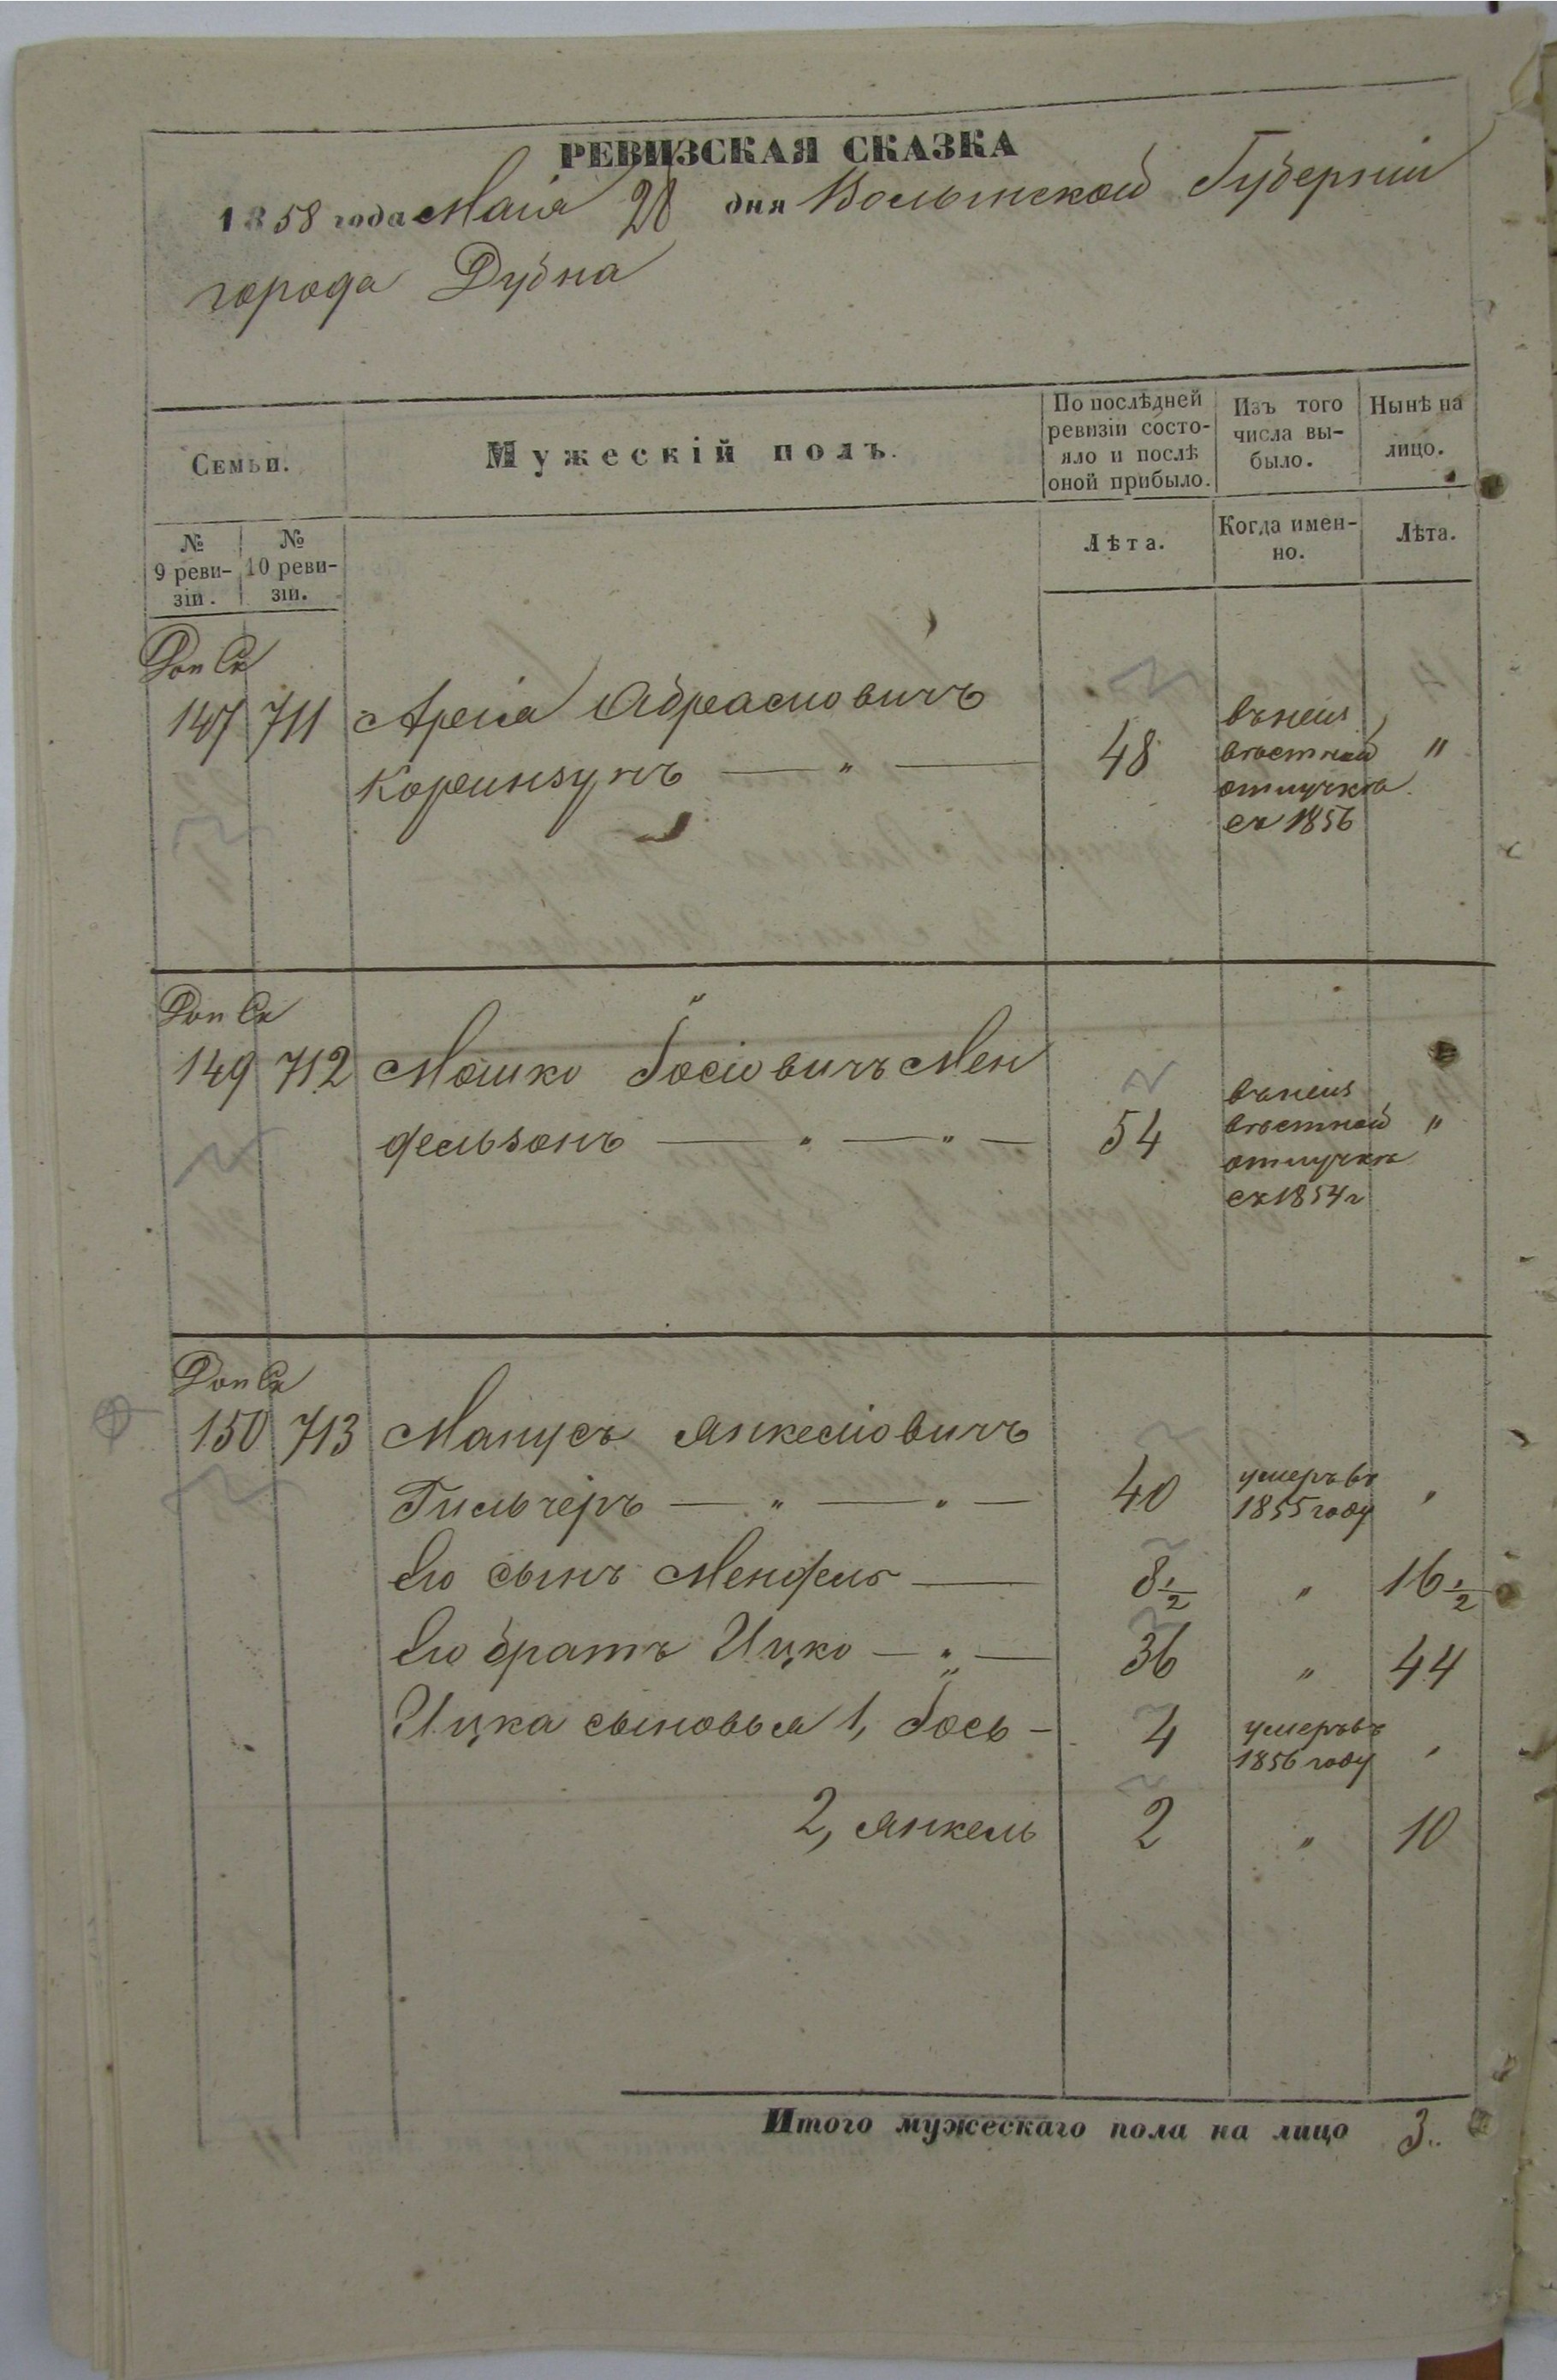 РЕВИЗСКАЯ СКАЗКА
1858 года Маія 28 дня Волынской Губерніи
города Дубна
Семьи.
Мужескій полъ.
По послѣдней ревизіи состо-
яло и послѣ
оной прибыло.
Изъ того
числа вы-
было.
Нынѣ на
лицо.
№
9 реви-
зіи.
№
10 реви-
зіи.
Лѣта.
Когда имен-
но.
Лѣта.
Доп Ск
147 711 Абрамовичъ
— " — 48 "
отлучкѣ
съ 1856
Доп Ск
149 712 Мошко Іосіовичъ Мен
дельзонъ — " — " — 54 "
отлучкѣ
съ 1854 г
Доп Ск
150 713 Манусъ Янкеліовичъ
Гильчеръ — " — " — 40 умеръ въ
1855 году "
Его сынъ Мендель — 8 1/2 " 16 1/2
Его братъ Ицко — " — 36 " 44
Ицка сыновья 1, Іось — 4 умеръ въ
1856 году "
2, Янкель 2 " 10
Итого мужескаго пола на лицо 3..